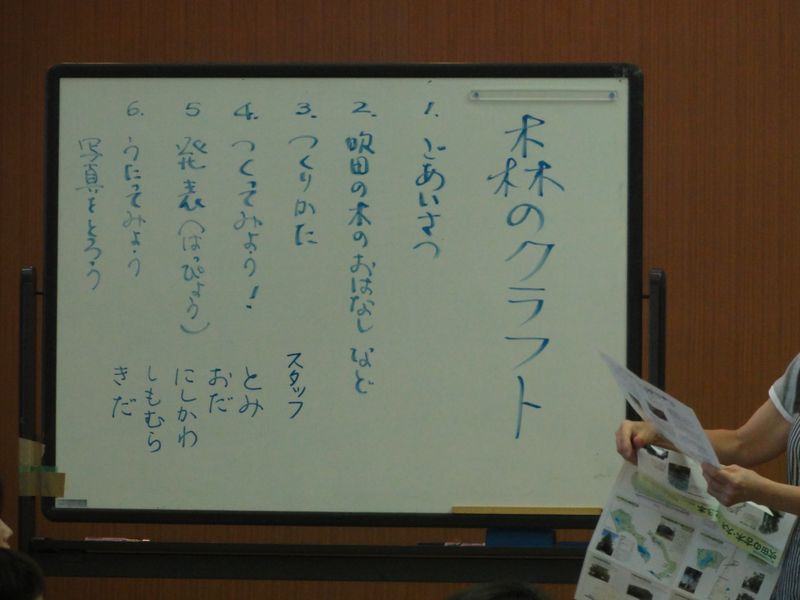 森のクラフト
1. ごあいさつ
2. 吹田の木のおはなし など
3. つくりかた
4. つくってみよう!
5 発表(はっぴょう)
6. うたってみよう
写真をとろう
スタッフ
とみ
おだ
にしかわ
しもむら
きだ